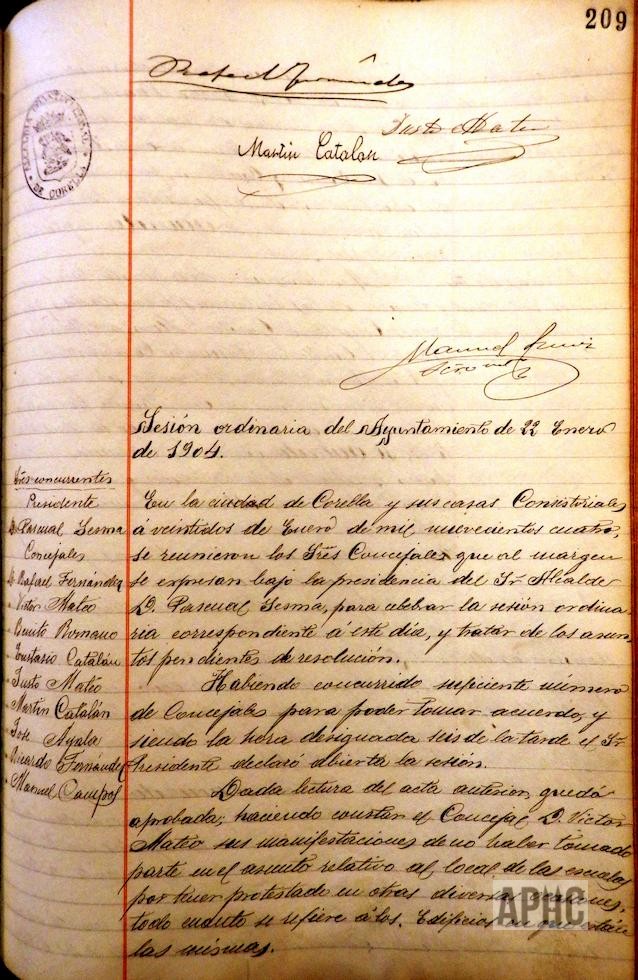 209
Rafael Fernández
Justo Mateo
Martin Catalan
ALCALDIA CONSTITUCIONAL
DE CORELLA
Manuel
Srio
Sesión ordinaria del Ayuntamiento de 22 Enero
de 1904.
Sres concurrentes
Presidente
D. Pascual Sesma
Concejales
D. Rafael Fernández
" Victor Mateo
" Benito Romano
" Eustasio Catalán
" Justo Mateo
" Martin Catalán
" Jose Ayala
" Ricardo Fernández
" Manuel Campos
En la ciudad de Corella y sus casas Consistoriales
á veintidos de Enero de mil nuevecientos cuatro,
se reunieron los Sres Concejales que al margen
se expresan bajo la presidencia del Sr. Alcalde
D. Pascual Sesma, para celebrar la sesión ordina
ria correspondiente á este día, y tratar de los asun
tos pendientes de resolución.
Habiendo concurrido suficiente número
de Concejales para poder tomar acuerdo, y
siendo la hora designada seis de la tarde el Sr.
Presidente declaró abierta la sesión.
Dada lectura del acta anterior, quedó
aprobada; haciendo constar el Concejal D. Victor
Mateo sus manifestaciones de no haber tomado
parte en el asunto relativo al local de las escuelas
por haber protestado en otras diversas ocasiones,
todo cuanto se refiere á los Edificios en que están
las mismas.
APHC